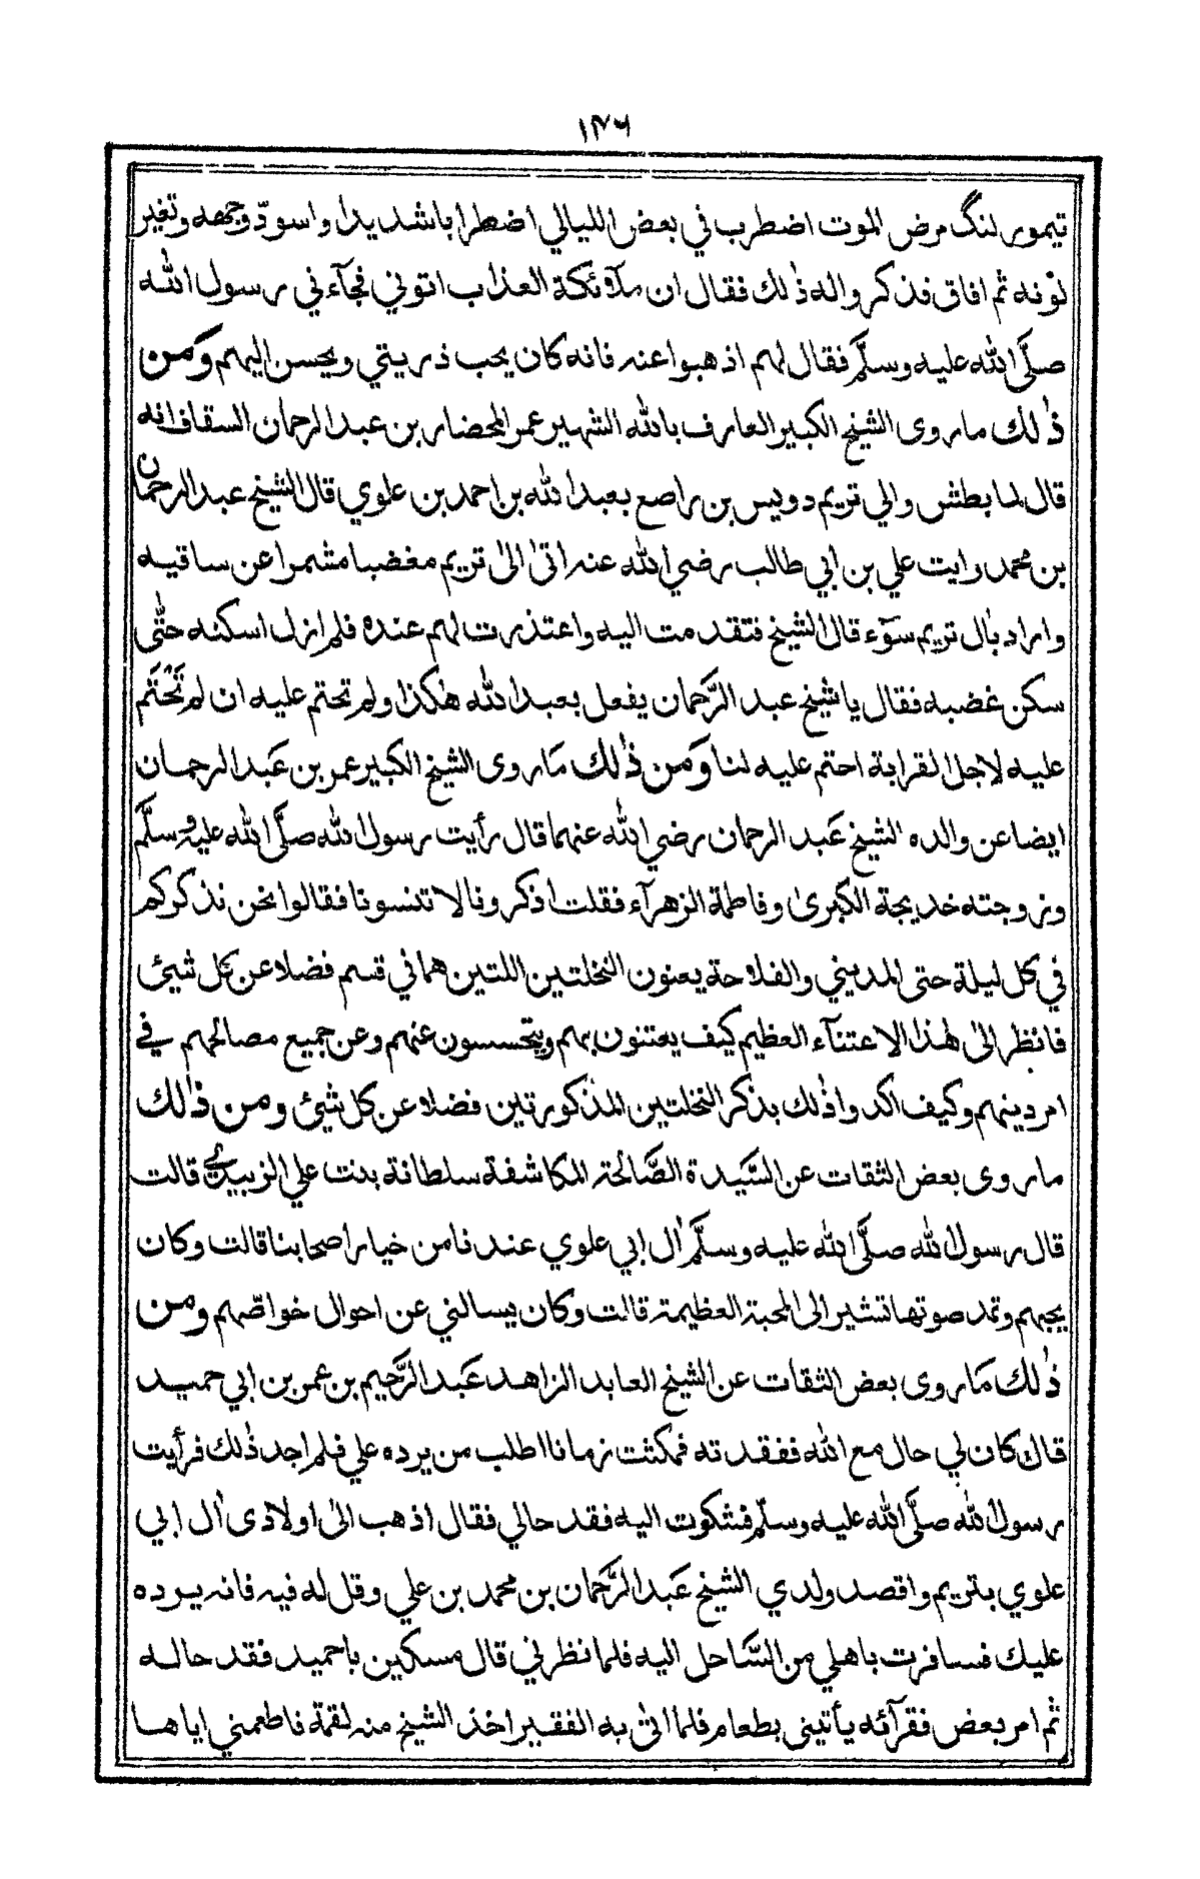 ١٣٦
تيمور لنگ مرض الموت اضطرب في بعض الليالي اضطرابا شديدا واسودّ وجهه وتغير
لونه ثم افاق فذكروا له ذٰلك فقال ان ملآئكة العذاب اتوني فجآءني رسول الله
صلَّى الله عليه وسلَّم فقال لهم اذهبوا عنه فانه كان يحب ذريتي ويحسن اليهم وَمن
ذٰلك ما روى الشيخ الكبير العارف بالله الشهير عمر المحضار بن عبد الرحمان السقاف انه
قال لما بطش والي تريم دويس بن راصع بعبد الله بن احمد بن علوي قال الشيخ عبد الرحمان
بن محمد رايت علي بن ابي طالب رضي الله عنه اتىٰ الىٰ تريم مغضبا مشمرا عن ساقيه
واراد بٰال تريم سوٓء قال الشيخ فتقدمت اليه واعتذرت لهم عنده فلم ازل اسكنه حتّٰى
سكن غضبه فقال يا شيخ عبد الرَّحمان يفعل بعبد الله هٰكذا ولم تحتم عليه ان لم تَحْتَم
عليه لاجل القرابة احتم عليه لنا وَمن ذٰلك مَا روى الشيخ الكبير عمر بن عَبد الرحمان
ايضا عن والده الشيخ عَبد الرحمان رضي الله عنهما قال رأيت رسول الله صلَّى الله عليه وسلَّم
وزوجته خديجة الكبرىٰ وفاطمة الزهرآء فقلت اذكرونا لا تنسونا فقالوا نحن نذكركم
في كل ليلة حتى المديني والفلاحة يعنون النخلتين اللتين هما في قسم فضلا عن كل شيئ
فانظر الىٰ هٰذا الاعتنآء العظيم كيف يعتنون بهم ويتحسسون عنهم وعن جميع مصالحهم في
امر دينهم وكيف اكدوا ذٰلك بذكر النخلتين المذكورتين فضلا عن كل شيئ ومن ذٰلك
ما روى بعض الثقات عن السَّيدة الصَّالحة المكاشفة سلطانة بنت علي الزبيدي قالت
قال رسول الله صلَّى الله عليه وسلَّم اٰل ابي علوي عندنا من خيار اصحابنا قالت وكان
يحبهم وتمد صوتها تشير الى المحبة العظيمة قالت وكان يسالني عن احوال خواصّهم ومن
ذٰلك مَا روى بعض الثقات عن الشيخ العابد الزاهد عَبد الرَّحيم بن عمر بن ابي حميد
قال كان لي حال مع الله ففقدته فمكثت زمانا اطلب من يرده علي فلم اجد ذٰلك فرأيت
رسول الله صلَّى الله عليه وسلّم فشكوت اليه فقد حالي فقال اذهب الىٰ اولادى اٰل ابي
علوي بتريم واقصد ولدي الشيخ عَبد الرَّحمان بن محمد بن علي وقل له فيه فانه يرده
عليك فسافرت باهلي من السَّاحل اليه فلما نظرني قال مسكين باحميد فقد حاله
ثم امر بعض فقرآئه يأتيني بطعام فلما اتىٰ به الفقير اخذ الشيخ منه لقمة فاطعمني اياها